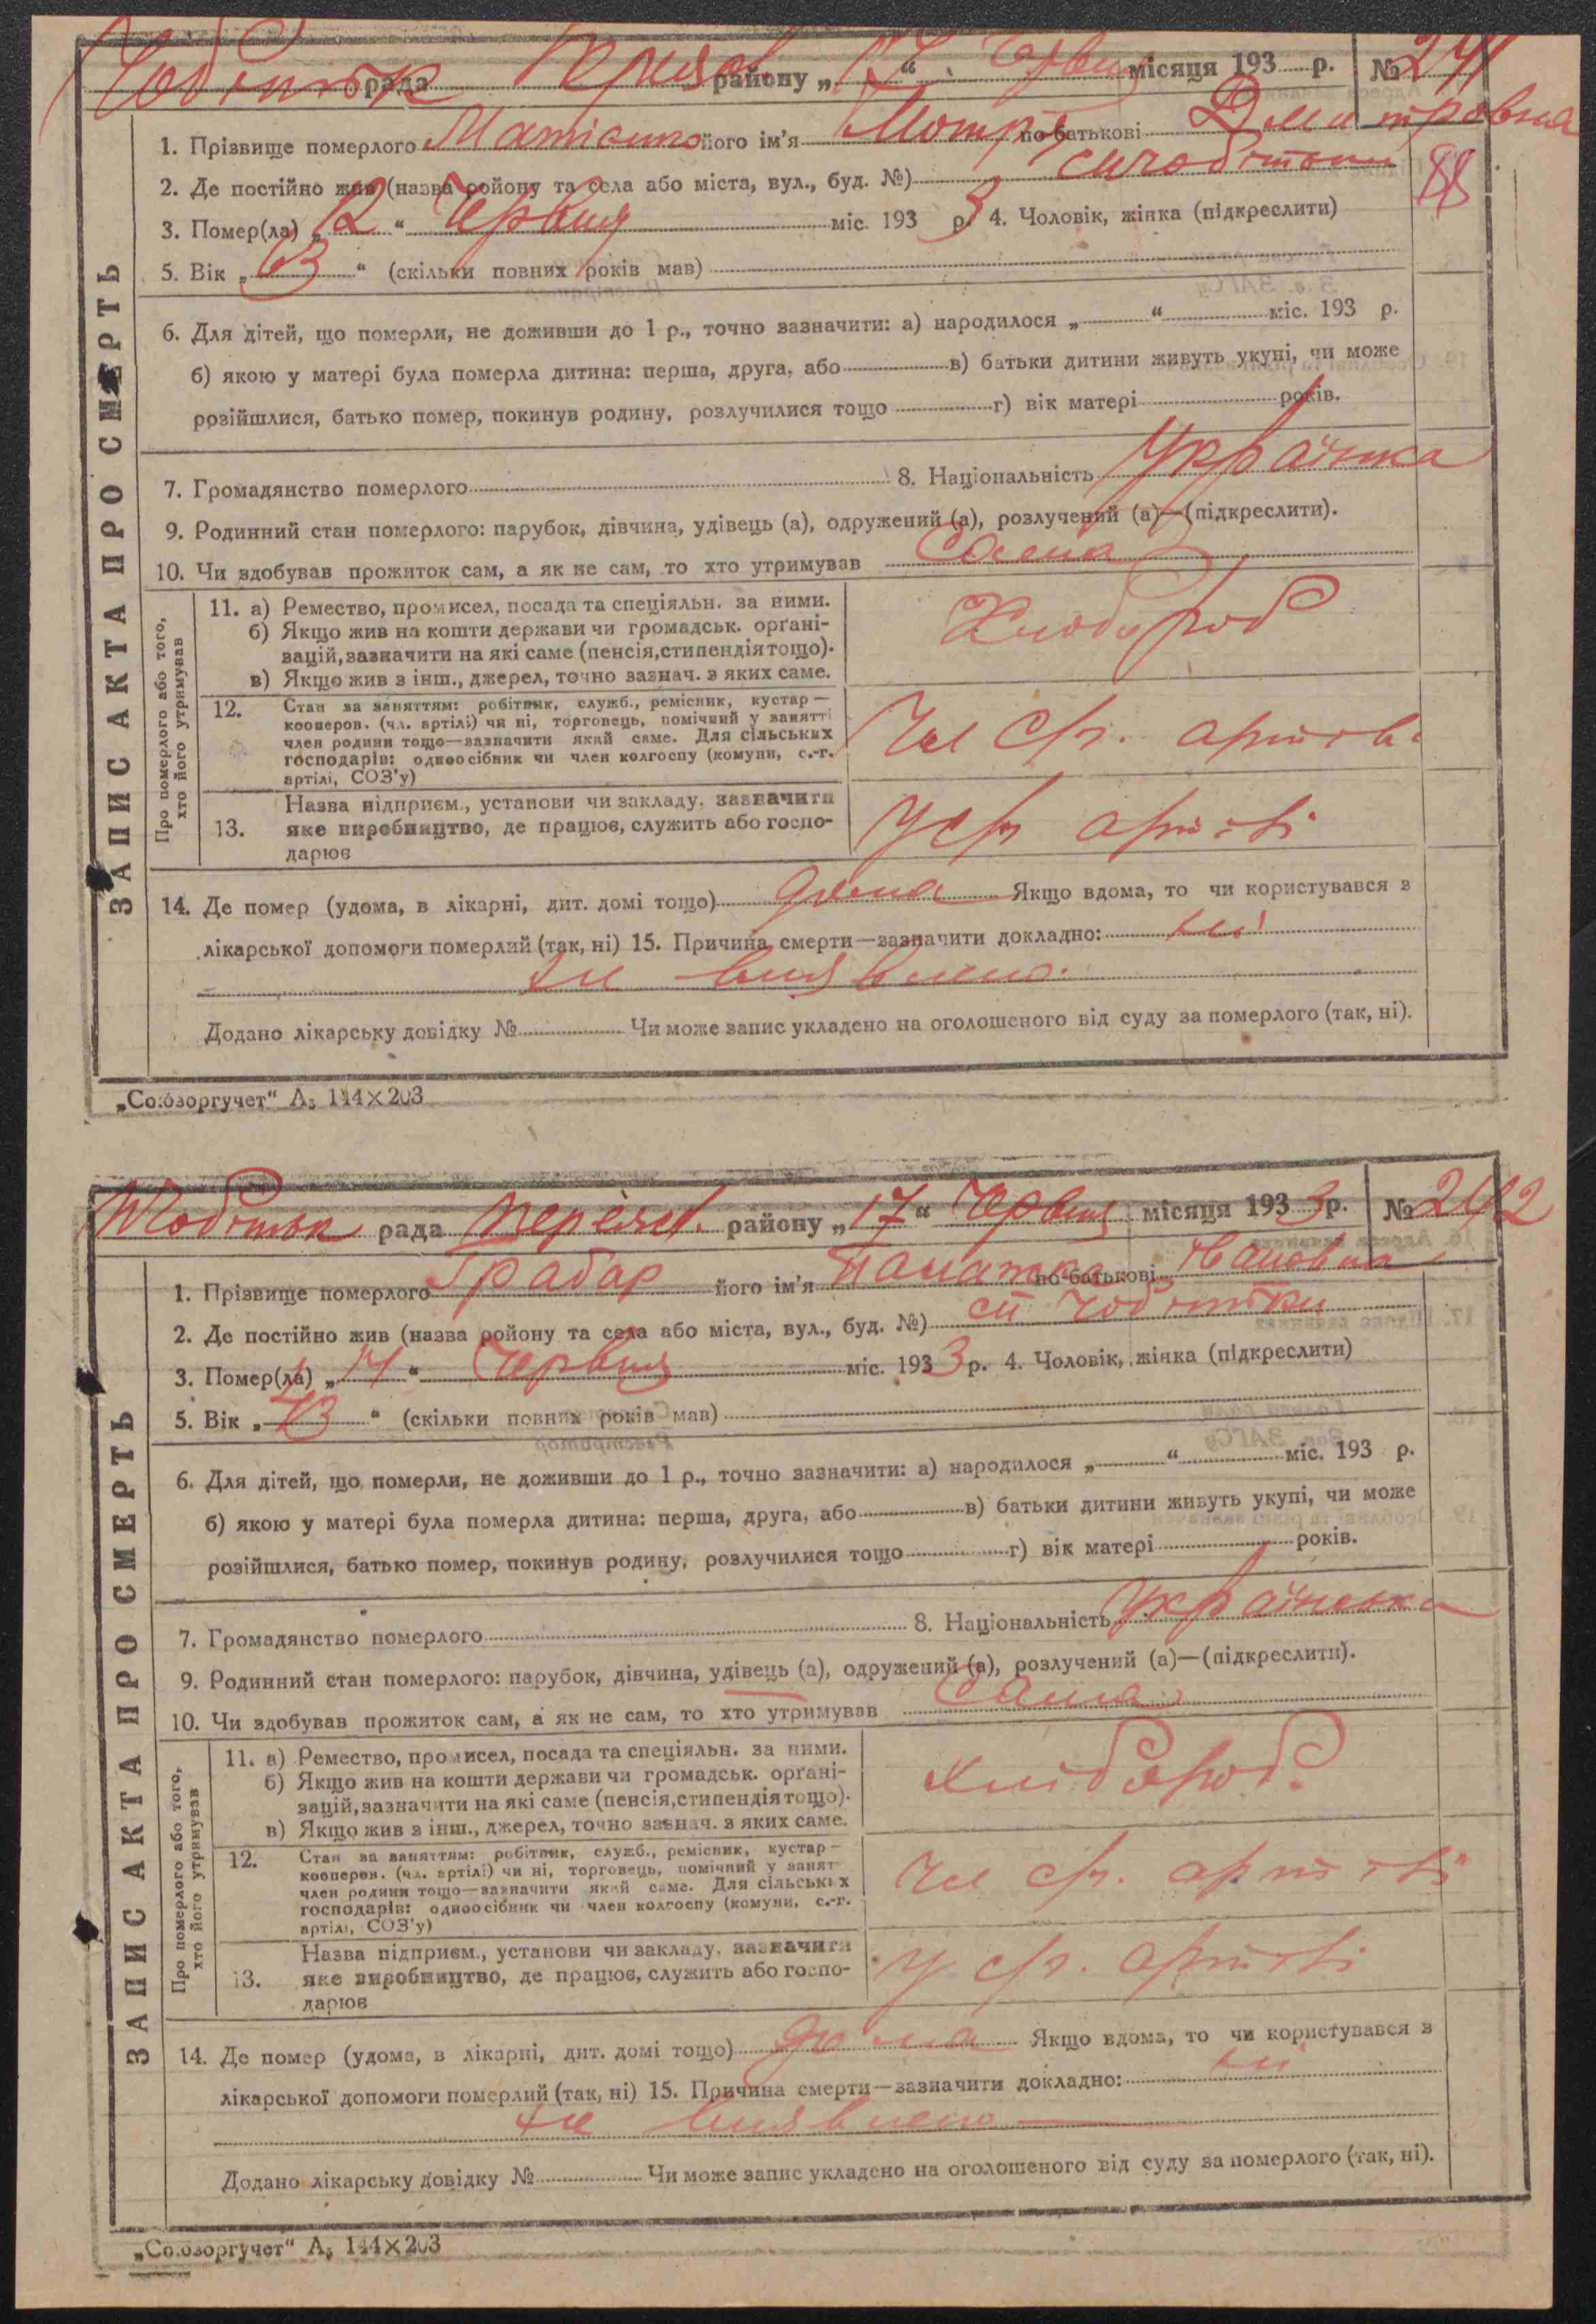 рада району „17“ Червня місяця 193 р. № 241
1. Прізвище померлого його ім'я Мотря по батькові Дмитровна
2. Де постійно жив (назва району та села або міста, вул., буд. №)
88
3. Помер(ла) „12“ Червня міс. 1933 р. 4. Чоловік, жінка (підкреслити)
5. Вік „63“ (скільки повних років мав)
6. Для дітей, що померли, не доживши до 1 р., точно зазначити: а) народилося „ “ міс. 193 р.
б) якою у матері була померла дитина: перша, друга, або в) батьки дитини живуть укупі, чи може
розійшлися, батько помер, покинув родину, розлучилися тощо г) вік матері років.
7. Громадянство померлого 8. Національність Українка
9. Родинний стан померлого: парубок, дівчина, удівець (а), одружений (а), розлучений (а)—(підкреслити).
10. Чи здобував прожиток сам, а як не сам, то хто утримував Сама
ЗАПИС АКТА ПРО СМЕРТЬ
Про померлого або того,
хто його утримував
11. а) Ремество, промисел, посада та спеціяльн. за ними.
б) Якщо жив на кошти держави чи громадськ. орґані-
зацій, зазначити на які саме (пенсія, стипендія тощо).
в) Якщо жив з інш., джерел, точно зазнач. з яких саме.
Хлібороб
12. Стан за заняттям: робітник, служб., ремісник, кустар—
кооперов. (чл. артілі) чи ні, торговець, помічний у занятті
член родини тощо—зазначити який саме. Для сільських
господарів: одноосібник чи член колгоспу (комуни, с.-г.
артілі, СОЗ'у)
Чл с/г. артілі
13. Назва підприєм., установи чи закладу, зазначити
яке виробництво, де працює, служить або госпо-
дарює
У с/г артілі
14. Де помер (удома, в лікарні, дит. домі тощо) дома Якщо вдома, то чи користувався з
лікарської допомоги померлий (так, ні) 15. Причина смерти—зазначити докладно: ні
не виявлено.
Додано лікарську довідку № Чи може запис укладено на оголошеного від суду за померлого (так, ні).
„Союзоргучет“ А₅ 144×203
рада району „17“ Червня місяця 1933 р. № 242
1. Прізвище померлого Грабар його ім'я по батькові Івановна
2. Де постійно жив (назва району та села або міста, вул., буд. №) Чобітки
3. Помер(ла) „14“ Червня міс. 1933 р. 4. Чоловік, жінка (підкреслити)
5. Вік „73“ (скільки повних років мав)
6. Для дітей, що померли, не доживши до 1 р., точно зазначити: а) народилося „ “ міс. 193 р.
б) якою у матері була померла дитина: перша, друга, або в) батьки дитини живуть укупі, чи може
розійшлися, батько помер, покинув родину, розлучилися тощо г) вік матері років.
7. Громадянство померлого 8. Національність Українська
9. Родинний стан померлого: парубок, дівчина, удівець (а), одружений (а), розлучений (а)—(підкреслити).
10. Чи здобував прожиток сам, а як не сам, то хто утримував Сама
ЗАПИС АКТА ПРО СМЕРТЬ
Про померлого або того,
хто його утримував
11. а) Ремество, промисел, посада та спеціяльн. за ними.
б) Якщо жив на кошти держави чи громадськ. орґані-
зацій, зазначити на які саме (пенсія, стипендія тощо).
в) Якщо жив з інш., джерел, точно зазнач. з яких саме.
хлібороб
12. Стан за заняттям: робітник, служб., ремісник, кустар—
кооперов. (чл. артілі) чи ні, торговець, помічний у занят
член родини тощо—зазначити який саме. Для сільських
господарів: одноосібник чи член колгоспу (комуни, с.-г.
артілі, СОЗ'у)
Чл с/г. артілі
13. Назва підприєм., установи чи закладу, зазначити
яке виробництво, де працює, служить або госпо-
дарює
у с/г. артілі
14. Де помер (удома, в лікарні, дит. домі тощо) дома Якщо вдома, то чи користувався з
лікарської допомоги померлий (так, ні) 15. Причина смерти—зазначити докладно: ні
не виявлено
Додано лікарську довідку № Чи може запис укладено на оголошеного від суду за померлого (так, ні).
„Союзоргучет“ А₅ 144×203